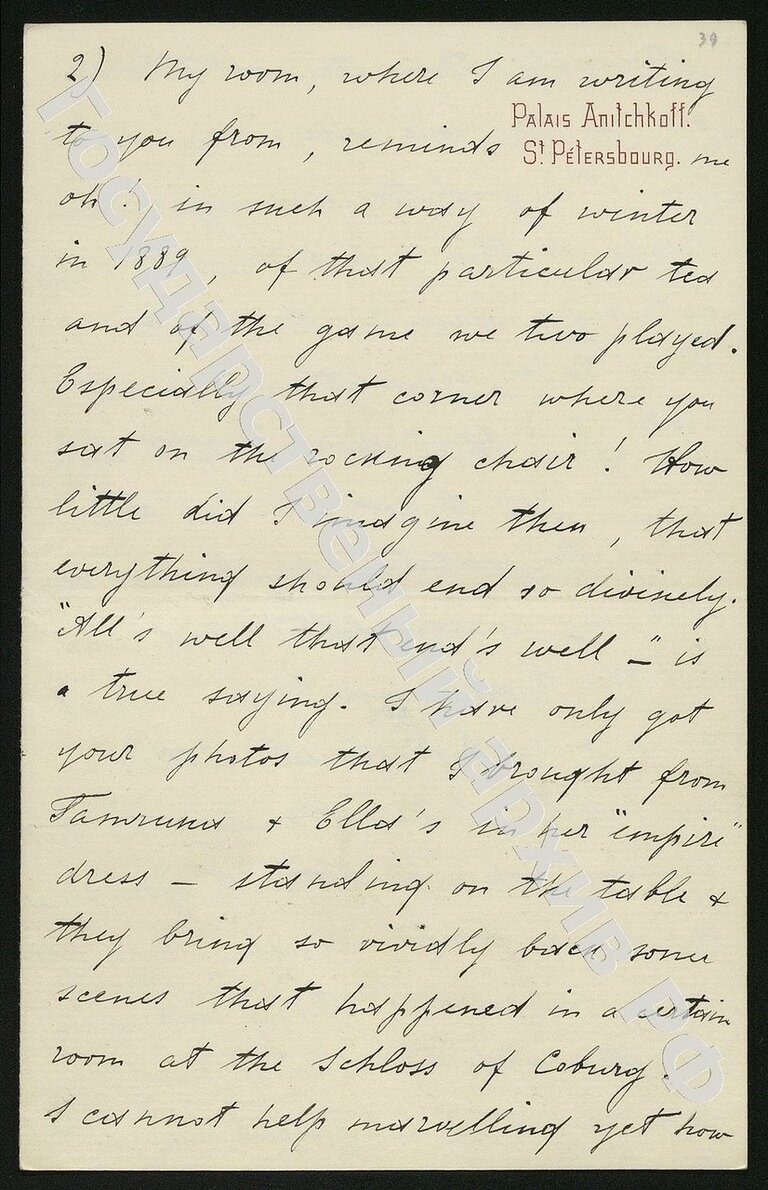 39
2) My room, where I am writing
Palais Anitchkoff.
St Pétersbourg.
to you from, reminds me
oh! in such a way of winter
in 1889, of that particular tea
and of the game we two played.
Especially that corner where you
sat on the rocking chair! How
little did I imagine then, that
everything should end so divinely.
"All's well that end's well –" is
a true saying. I have only got
your photos that I brought from
& Ella's in her "empire"
dress – standing on the table &
they bring so vividly back some
scenes that happened in a certain
room at the Schloss of Coburg.
I cannot help marvelling yet how
Государственный архив РФ